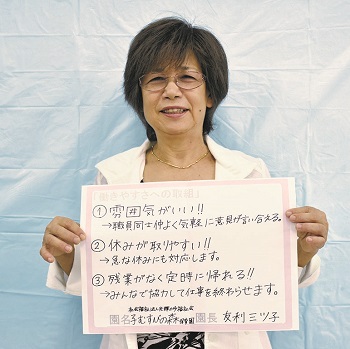 「働きやすさへの取組」
①雰囲気がいい!!
→職員同士仲よく気軽に意見が言い合える。
②休みが取りやすい!!
→急な休みにも対応します。
③残業がなく定時に帰れる!!
→みんなで協力して仕事を終わらせます。
園名 子むすびの森保育園 園長 友利三ツ子